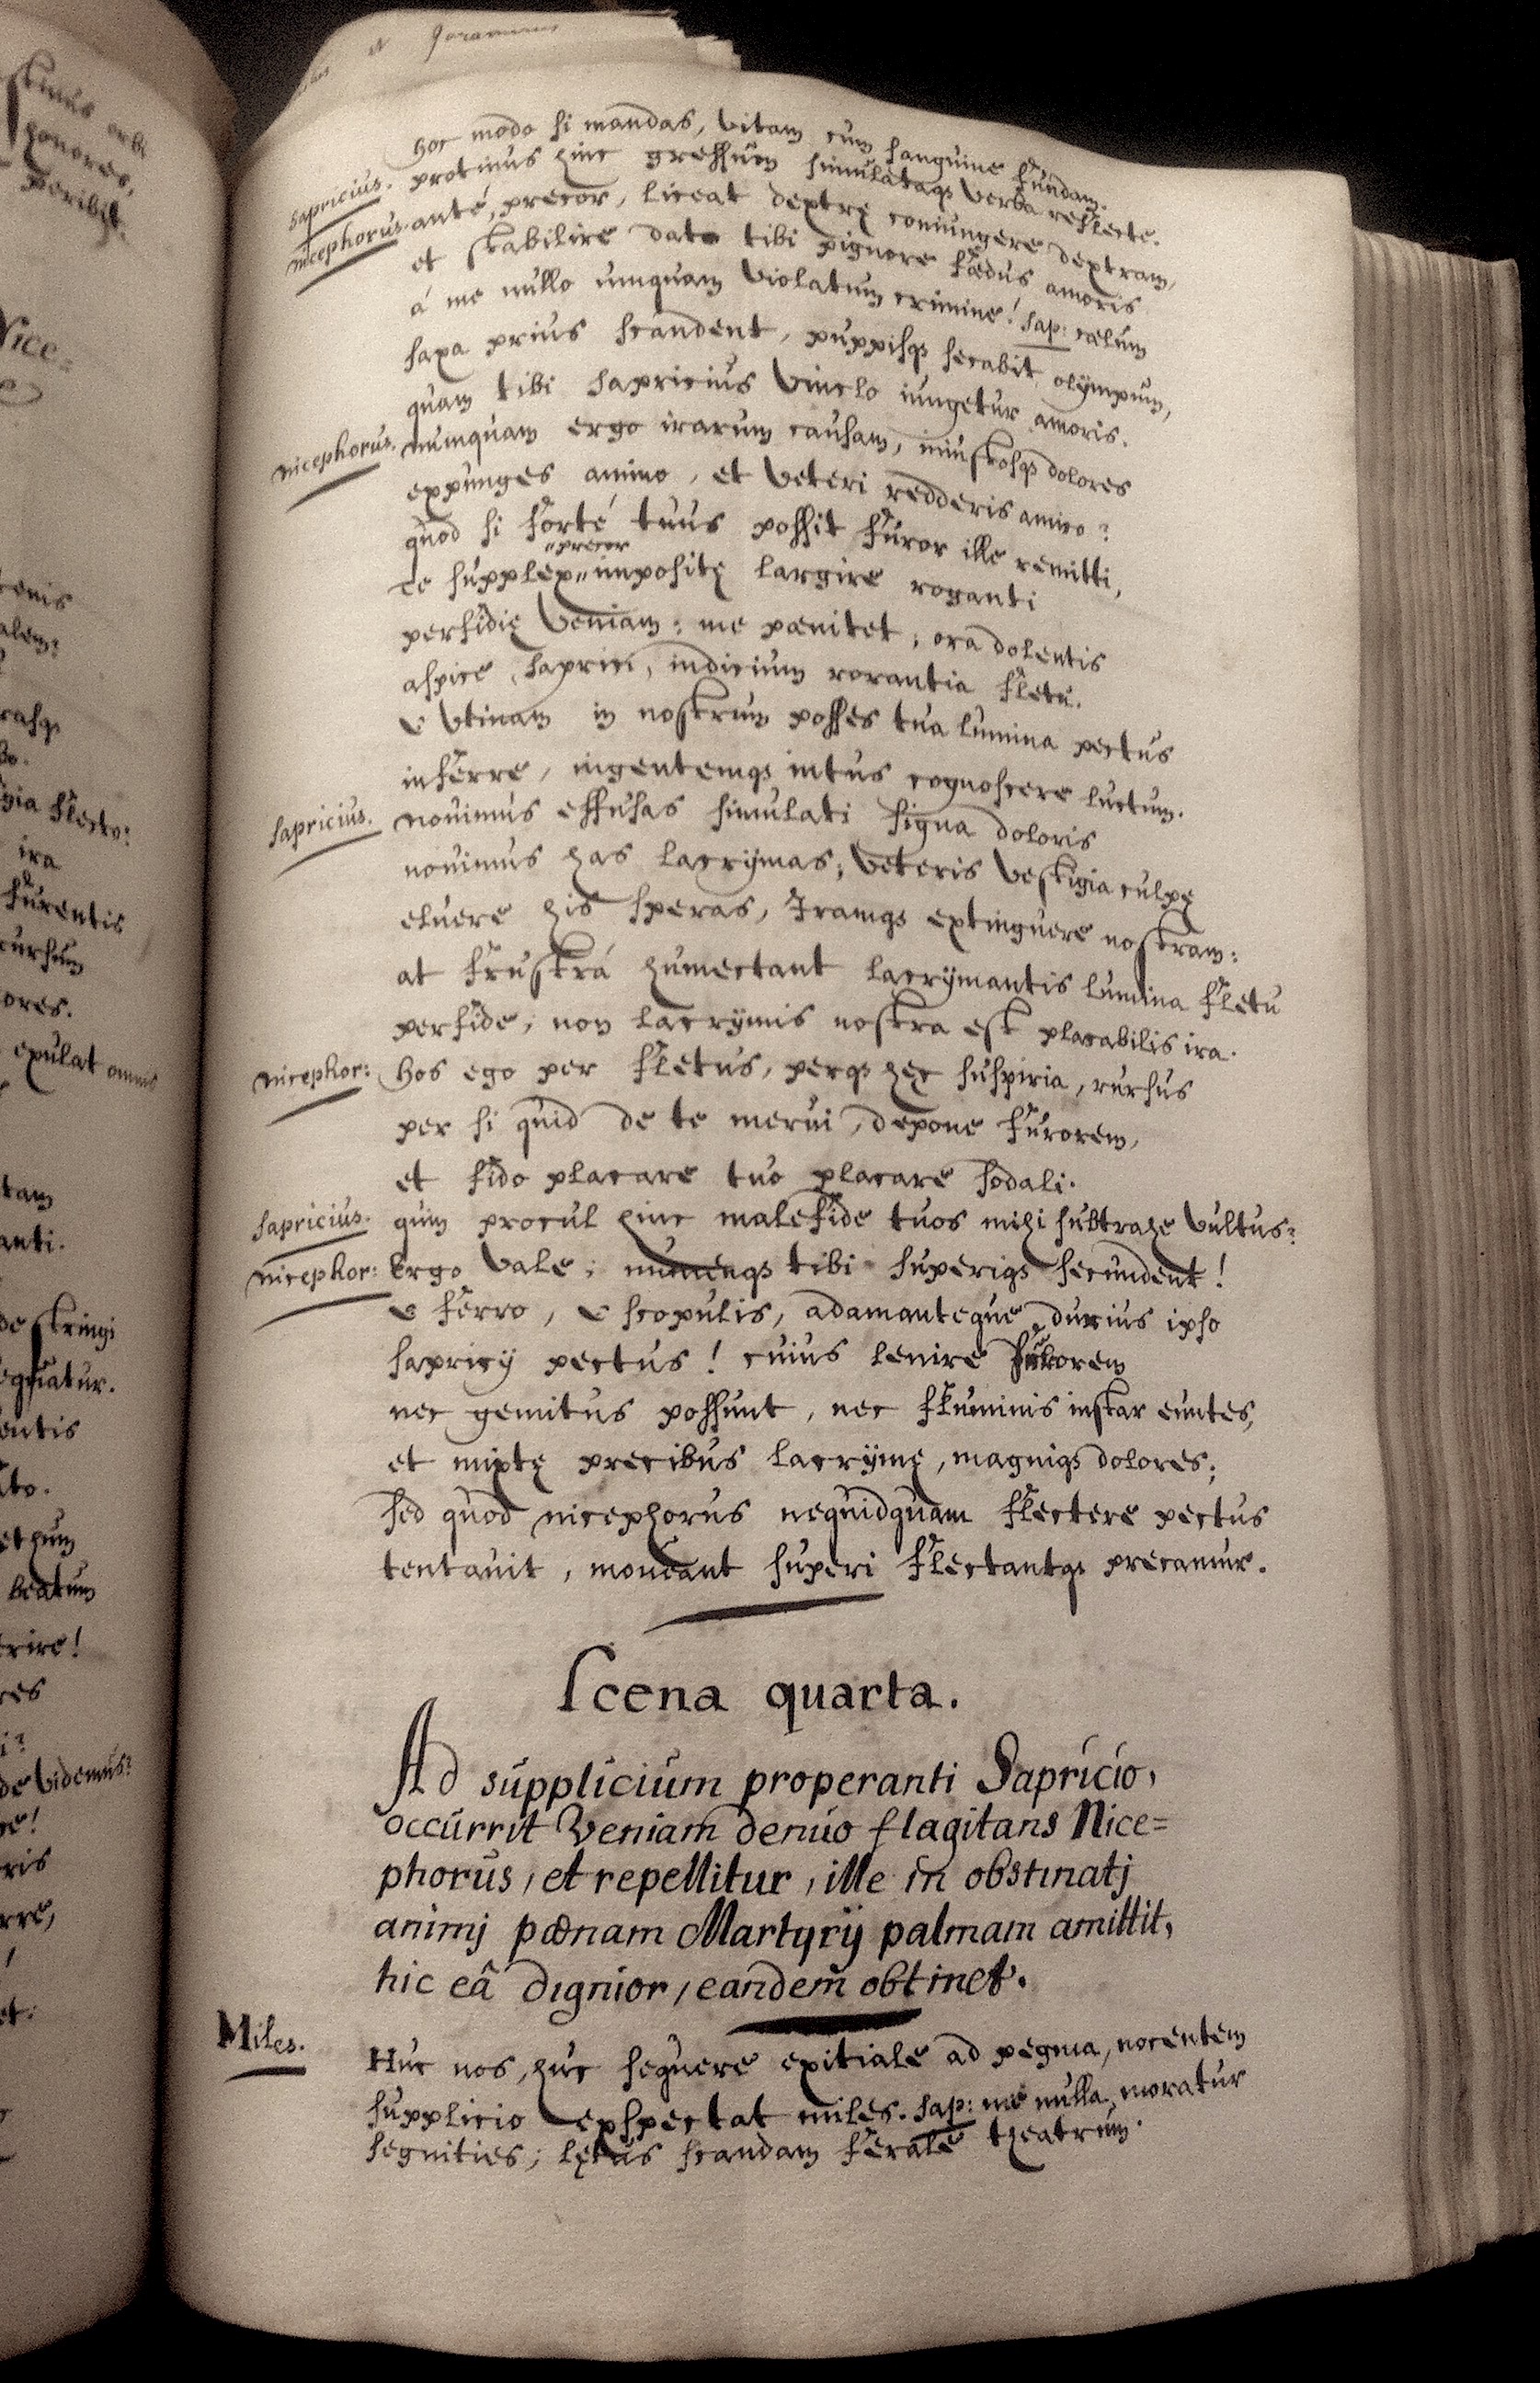 hoc modo si mandas, vitam cum sanguine fundam.
Sapricius. protinus hinc gressum simulataqs verba reflecte.
Nicephorus. anté, precor, liceat dextrę coniungere dextram,
et stabilire dato tibi pignore fædus amoris
á me nullo umquam violatum crimine! Sap: cælum
saxa prius scandent, puppisqs secabit olÿmpum,
quam tibi Sapricius vinclo iungetur amoris.
Nicephorus. numquam ergo irarum causam, iniustosqs dolores
expunges animo, et veteri redderis amico?
quod si forté tuus possit furor ille remitti,
"precor
te supplex" impositę largire roganti
perfidię veniam; me pænitet; ora dolentis
aspice, Saprici, indicium rorantia fletu.
o utinam in nostrum posses tua lumina pectus
inferre, ingentemqs intus cognoscere luctum.
Sapricius. novimus effusas simulati signa doloris
novimus has lacrÿmas; veteris vestigia culpę
eluere his speras, Iramqs extinguere nostram:
at frustrá humectant lacrÿmantis lumina fletu
perfide; non lacrÿmis nostra est placabilis ira.
Nicephor: hos ego per fletus, perqs hęc suspiria, rursus
per si quid de te merui, depone furorem,
et fido placare tuo placare sodali.
Sapricius. quin procul hinc malefide tuos mihi subtrahe vultus:
Nicephor: Ergo vale; numenqs tibi superiqs secundent!
o ferro, o scopulis, adamanteque durius ipso
Sapricij pectus! cuius lenire furorem
nec gemitus possunt, nec fluminis instar euntes,
et mixtę precibus lacrÿmę, magniqs dolores;
sed quod nicephorus nequidquam flectere pectus
tentavit, moveant superi flectantqs precamur.
Scena quarta.
Ad supplicium properanti Sapricio,
occurrit Veniam denuo flagitans Nice=
phorus, et repellitur, ille in obstinatj
animj pœnam Martyrij palmam amittit,
hic eâ dignior, eandem obtinet.
Miles. Huc nos, huc sequere exitiale ad pegma, nocentem
supplicio exspectat miles. Sap: me nulla moratur
segnities; lętus scandam ferale theatrum.